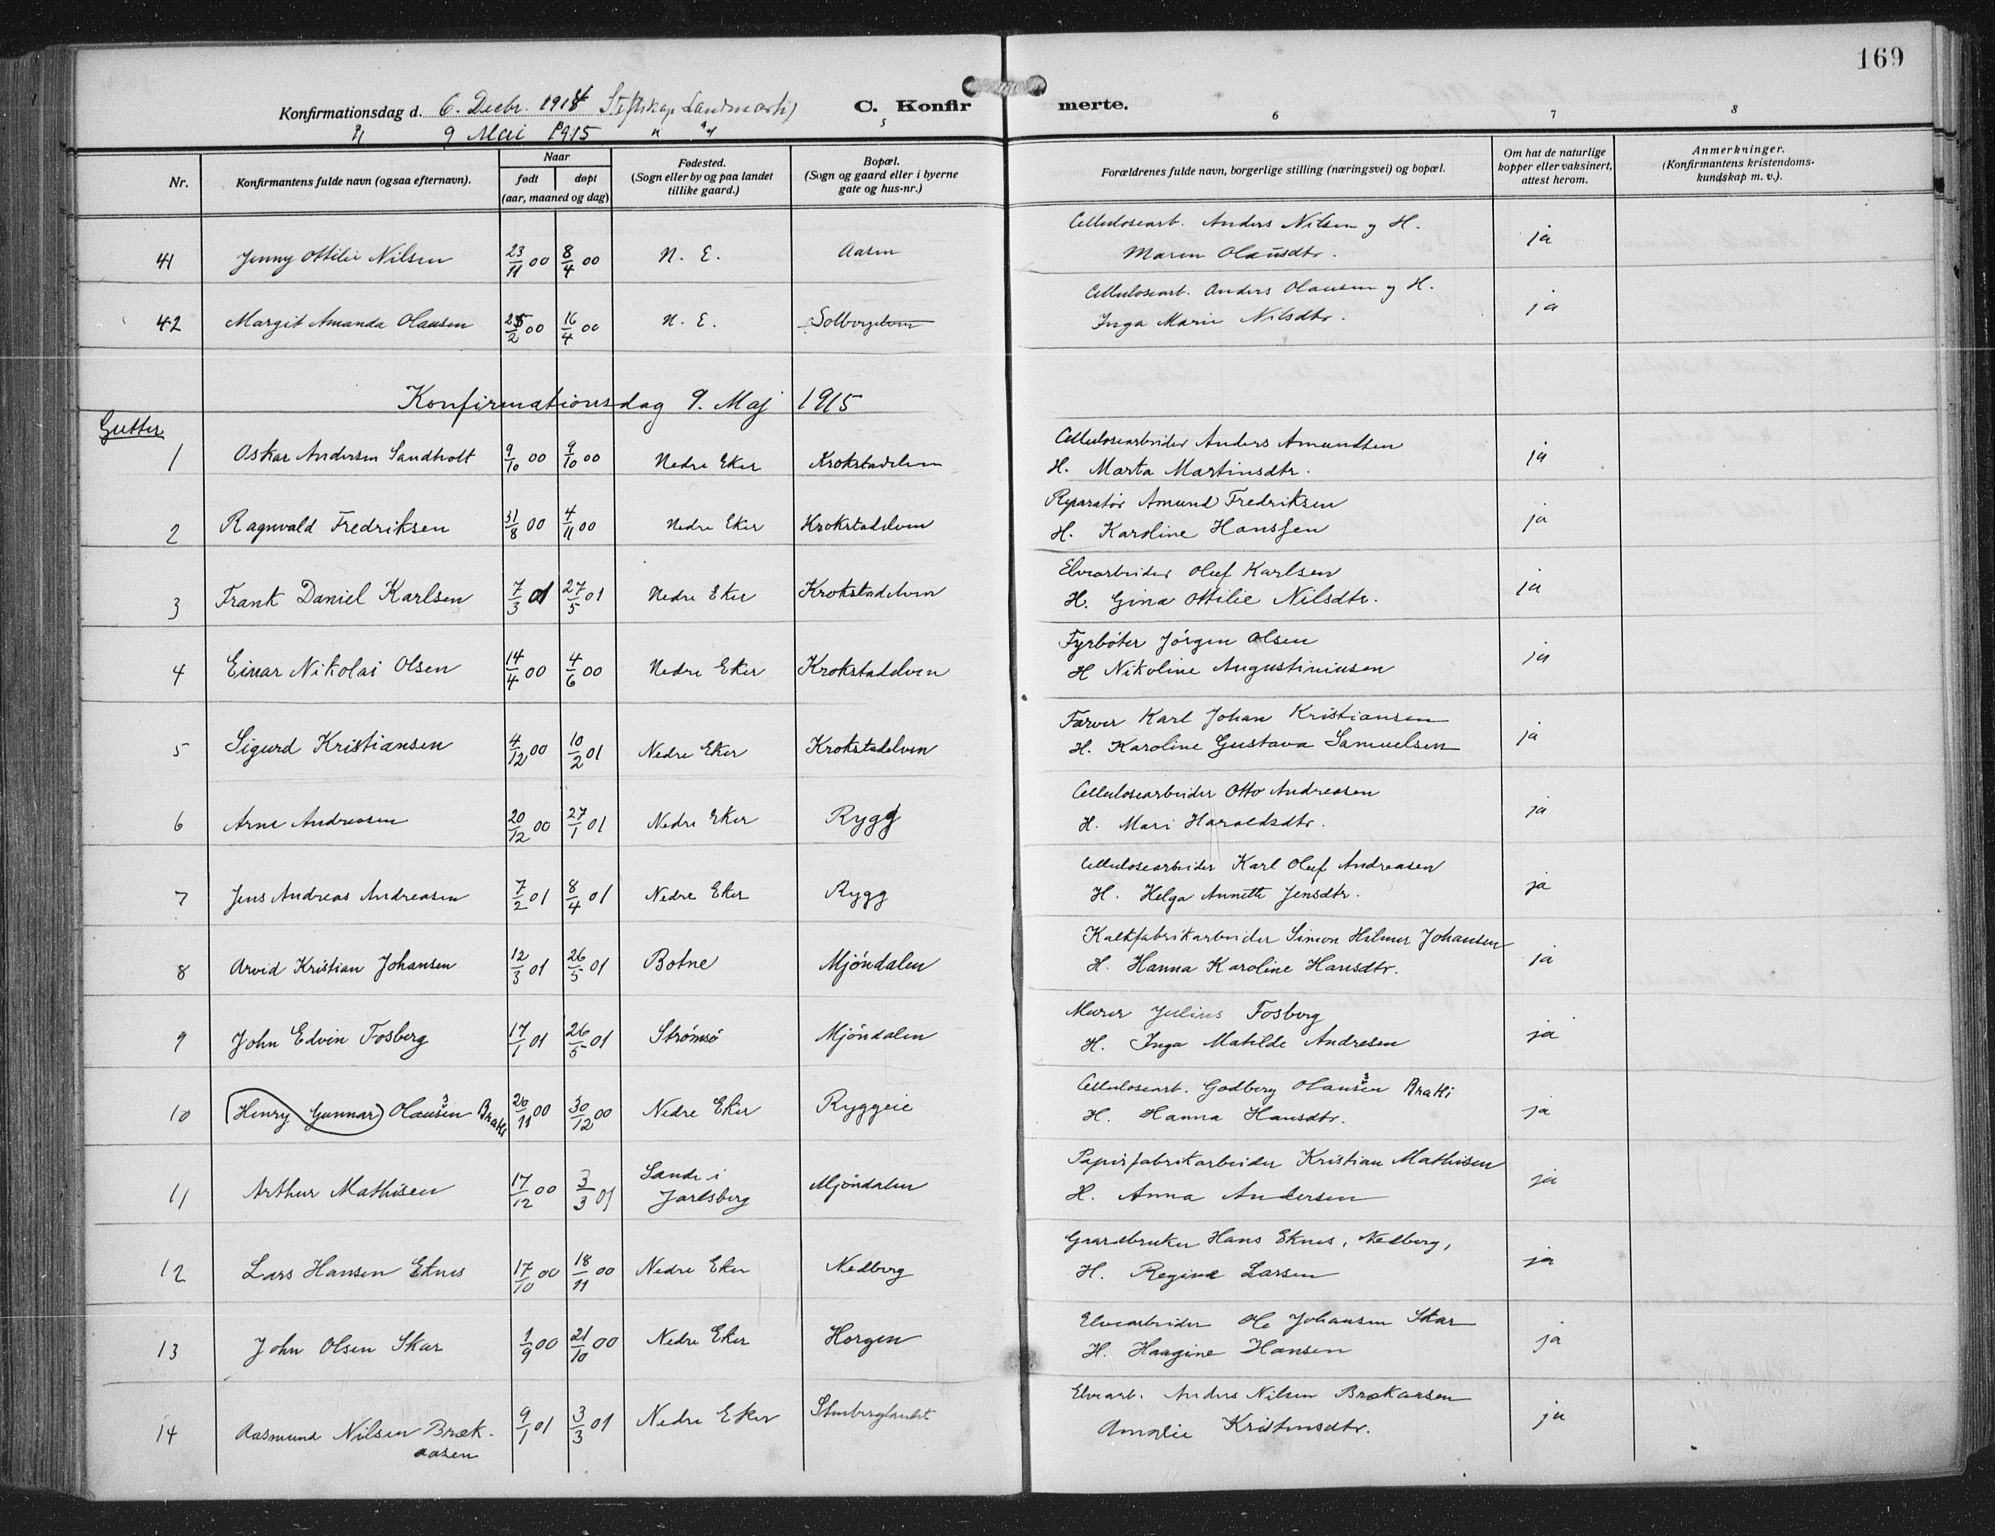 169
Konfirmationsdag d. 6. Decbr. 1914 C. Konfirmerte.
" 9 Mai 1915 " "
5 6 7 8
Nr. Konfirmantens fulde navn (ogsaa efternavn). Naar født døpt (aar, maaned og dag) Fødested. (Sogn eller by og paa landet tillike gaard.) Bopæl. (Sogn og gaard eller i byerne gate og hus-nr.) Forældrenes fulde navn, borgerlige stilling (næringsvei) og bopæl. Om hat de naturlige kopper eller vaksinert, attest herom. Anmerkninger. (Konfirmantens kristendoms-kundskap m. v.).
41 Jenny Ottilie Nilsen 23/11 00 8/4 00 N. E. Aasen Cellulosearb. Anders Nilsen og H. ja
Maren Olausdtr.
42 Margit Amanda Olausen 25/2 00 16/4 00 N. E. Solbergelven Cellulosearb. Anders Olausen og H. ja
Inga Marie Nilsdtr.
Konfirmationsdag 9. Maj 1915
Gutter
1 Oskar Andersen Sandholt 9/10 00 9/10 00 Nedre Eker Krokstadelven Cellulosearbeider Anders Amundsen ja
H. Marta Martinsdtr.
2 Ragnvald Fredriksen 31/8 00 4/11 00 Nedre Eker Krokstadelven Reparatør Amund Fredriksen ja
H. Karoline Hanssen
3 Frank Daniel Karlsen 7/3 01 27/5 01 Nedre Eker Krokstadelven Elvearbeider Oluf Karlsen ja
H. Gina Ottilie Nilsdtr.
4 Einar Nikolai Olsen 14/4 00 4/6 00 Nedre Eker Krokstadelven Fyrbøter Jörgen Olsen ja
H Nikoline Augustiniusen
5 Sigurd Kristiansen 4/12 00 10/2 01 Nedre Eker Krokstadelven Farver Karl Johan Kristiansen ja
H. Karoline Gustava Samuelsen
6 Arne Andreasen 20/12 00 27/1 01 Nedre Eker Rygg Cellulosearbeider Otto Andreasen ja
H. Mari Haraldsdtr.
7 Jens Andreas Andreasen 7/2 01 8/4 01 Nedre Eker Rygg Cellulosearbeider Karl Oluf Andreasen ja
H. Helga Annette Jensdtr.
8 Arvid Kristian Johansen 12/3 01 26/5 01 Botne Mjöndalen Kalkfabrikarbeider Simon Hilmer Johansen ja
H. Hanna Karoline Hansdtr.
9 John Edvin Fosberg 17/1 01 26/5 01 Strømsø Mjöndalen Murer Julius Fosberg ja
H. Inga Matilde Andresen
10 (Henry Gunnar) Olausen Brakti 20/11 00 30/12 00 Nedre Eker Ryggeie Cellulosearb. Godberg Olausen Brakti ja
H. Hanna Hansdtr.
11 Arthur Mathisen 17/12 00 3/3 01 Sande i Jarlsberg Mjöndalen Papirfabrikarbeider Kristian Mathisen ja
H. Anna Andersen
12 Lars Hansen Eknes 17/10 00 18/11 00 Nedre Eker Nedberg Gaardbruker Hans Eknes, Nedberg, ja
H. Regine Larsen
13 John Olsen Skar 1/9 00 21/10 00 Nedre Eker Horgen Elvearbeider Ole Johansen Skar ja
H. Haagine Hansen
14 Aasmund Nilsen Bræk- 9/1 01 3/3 01 Nedre Eker Elvearb. Anders Nilsen Brækaasen ja
aasen Amalie Kristensdtr.